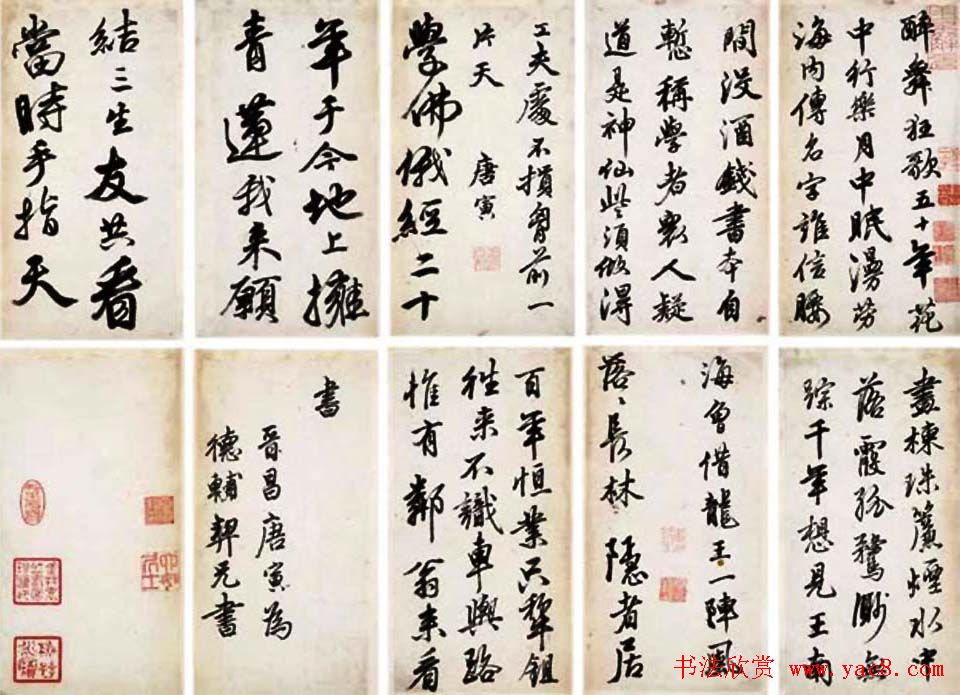 醉舞狂歌五十年花
中行樂月中眠漫勞
海內傳名字誰信腰
間沒酒錢書本自
慙稱學者衆人疑
道是神仙些須做得
工夫處不損胷前一
片天
唐寅
學佛俄經二十
年于今地上擁
青蓮我来願
結三生友共看
當時手指天
畫棟珠簾煙水中
落霞孤鶩渺無
踪千年想見王南
海曾借龍王一陣風
落〻長林隱者居
百年恒業只犂鉏
往来不識車輿路
惟有鄰翁来看
書
晉昌唐寅為
德輔契兄書
书法欣赏 www.yac8.com